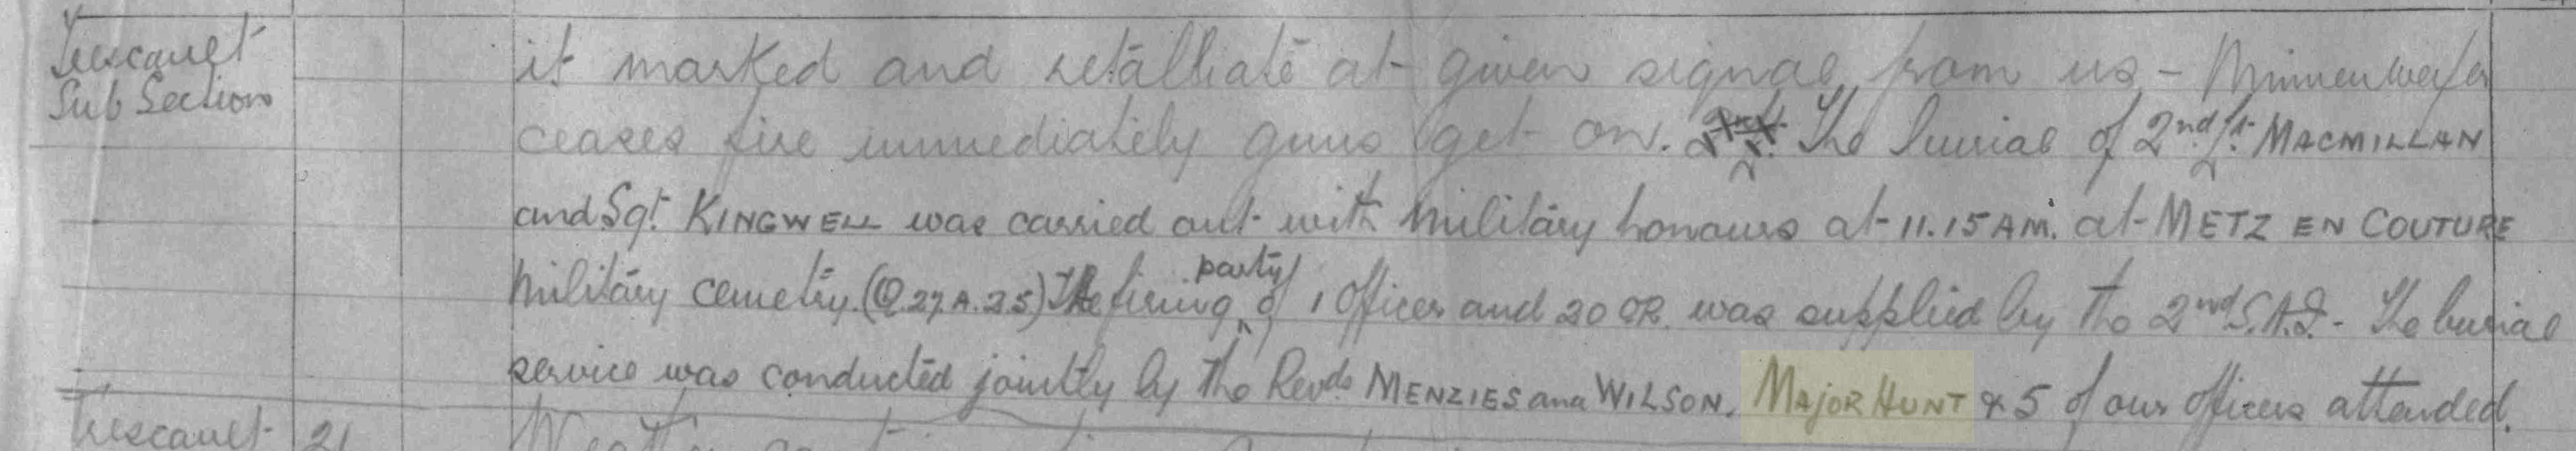 Trescault
Sub Section
it marked and retalliate at given signal from us - Minnenwerfer
ceases fire immediately guns get on. The burial of 2nd Lt. MACMILLAN
and Sgt KINGWELL was carried out with military honours at 11.15 AM. at METZ EN COUTURE
Military Cemetry. (Q.27.A.2.5) The firing party of 1 Officer and 20 OR. was supplied by the 2nd S.A.I. - The burial
service was conducted jointly by the Revds MENZIES and WILSON. MAJOR HUNT & 5 of our officers attended.
Trescault 21